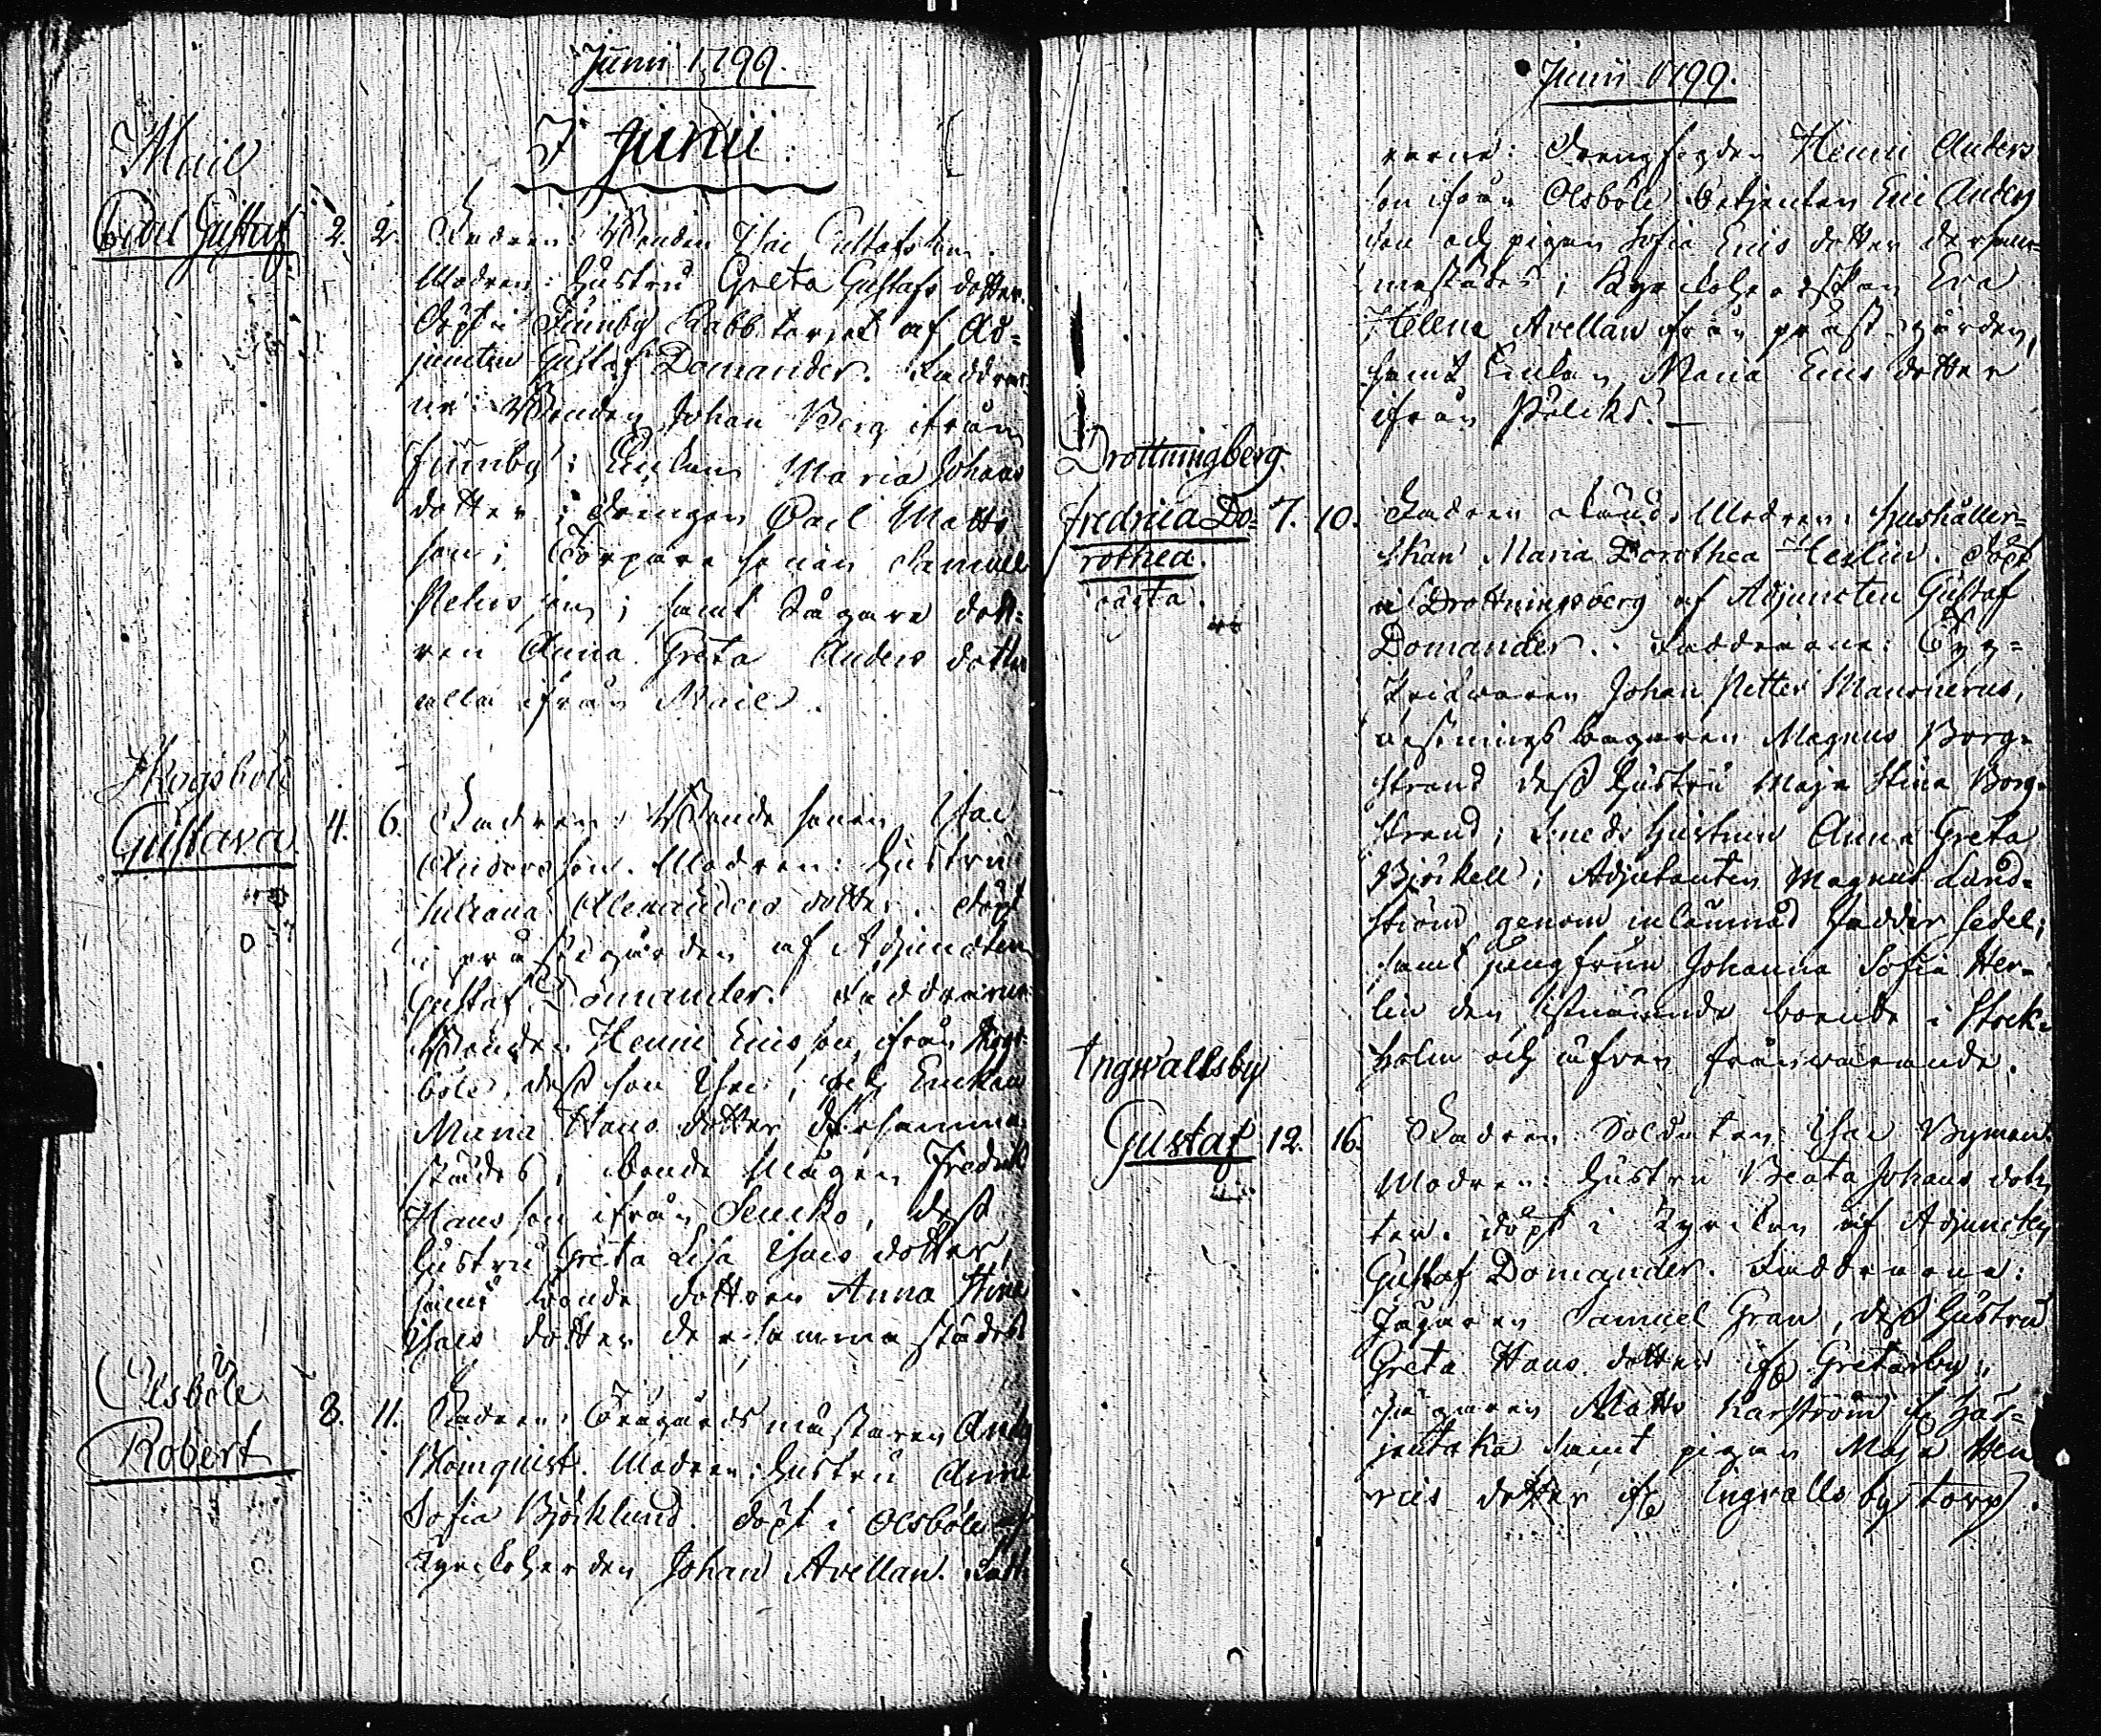 Junii 1799.
I Junii.
Mail
Carl Gustaf 2. 2. Fadren: Bonden Isac Gustafsson.
Modren: Hustru Greta Gustafs dotter.
Döpt i Finnby af Ad=
juncten Gustaf Domander. Faddrar
ne: Bonden Johan Berg ifrån
Finnby; Enkan Maria Johans
dotter; Drengen Carl Matts
son; Torpare sonen Samuel
Petersson; samt dott=
ren Anna Greta Anders dotter
alla ifrån Mail.
Skogsböle
Gustava 4. 6. Fadren: Bonde sonen Isac
Andersson. Modren: Hustru
Juliana Alexanders dotter. Döpt
i prästgården af Adjuncten
Gustaf Domander. Faddrarne
Bonden Henric Ericsson ifrån Skogs
böle, dess son Isac, och Enkan
Maria Hans dotter dersamma
städes; bonde mågen Fredric
Hansson ifrån, dess
Hustru Greta Lisa Isacs dotter,
samt bonde dottren Anna Stina
Isacs dotter dersamma städes
Olsböle
Robert 8. 11. Fadren: Trägårdsmästaren And
Blomquist. Modren: Hustru Anna
Sofia Björklund. Döpt i Olsböle af
Kyrckoherden Johan Avellan. Fadd
Junii 1799.
rarne: Henric Anders
son ifrån Olsböle; Betjenten Eric Anders
son och pigan Sofia Erics dotter dersam=
mastädes; Kyrckoherdskan Eva
Helena Avellan ifrån prästgården,
samt Enkan Maria Erics dotter
ifrån
Drottningberg
Fredrica Do= 7. 10. Fadren okänd. Modren: Hushåller=
rothea. skan Maria Dorothea Herlin. Döpt
oägta. i Drottningsberg af Adjuncten Gustaf
Domander. Faddrarne: Tyg=
skrifvaren Johan Petter Mansnerus,
Magnus Borg=
strand dess Hustru Maja Stina Borg=
strand; Smeds Hustrun Anna Greta
Björkell; Adjutanten Magnus Lund=
ström genom inlämnad fadder sedel;
samt jungfrun Johanna Sofia Her=
lin den sistnämnde boende i Stock=
holm och äfven frånvarande.
Ingwallsby
Gustaf 12. 16. Fadren: Soldaten Isac Byman.
Modren: Hustru Beata Johans dot=
ter. Döpt i Kyrckan af Adjuncten
Gustaf Domander. Faddrarne:
Jägaren Samuel Gran, dess Hustru
Greta Hans dotter ifr Gretarby;
Jägaren Matts Karström ifr Här=
jentaka samt pigan Maja Hen
rics dotter ifr Ingvallsby torp.